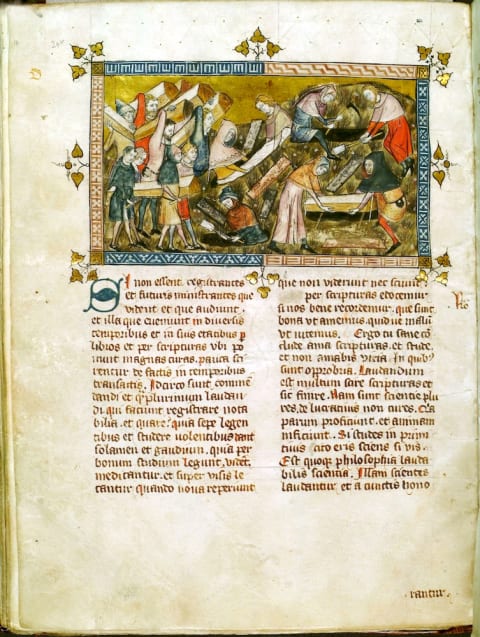 Si non essent registrantes
et futuris ministrantes que
vident et que audiunt.
et illa que eveniunt in diversis
temporibus et in suis etatibus p
libros et per scripturas ubi po
nunt magnas curas. pauca sci
rentur de factis in temporibus
transactis. Idcirco sunt comme
dandi et qz plurimum laudan
di. qui faciunt registrare nota
bilia. et quare. quia sepe legen
tibus et studere volentibus dant
solamen et gaudium. quia per
bonum studium legunt. vident.
meditantur. et super visis le
tantur quando nova reperiunt
que non viderunt nec sciunt.
per scripturas edocemur.
si nos bene recordemur. que sunt
bona ut amemus. quid ve malum
ut vitemus. Ergo tu sane co
clude ama scripturas. et stude.
et non amabis vicia. In quibz
sunt opprobria. Laudandum
est multum scire scripturas et
sic finire. Nam sunt scientie plu
res. de lucrativis non cures.
parum proficiunt. et animam
inficiunt. Si studes in primi
tivis cito eris sciens si vis.
Est quoqz philosophia lauda
bilis scientia. Illam scientes
laudantur. et a cunctis hono
rantur.